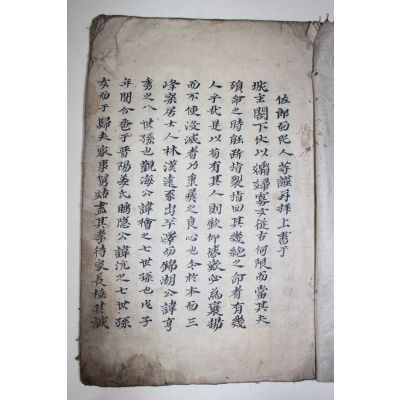 佐郎面民人等謹再拜上書于
城主閤下伏以孀婦寡女從古何限而當其夫
殞命之時能斷指裂指回其幾絶之命者有幾
人乎哉是以苟有其人則欽仰感歎必爲褒揚
而不使沒滅者乃秉彛之良心也今於本面三
峰寮居士人林漢遠家出平澤而錦湖公諱亨
秀之八世孫也觀海公諱檜之七世孫也戊子
年間合巹于晋陽姜氏睡隱公諱沆之七世孫
女而于歸夫家事舅姑盡其孝待家長極其誠